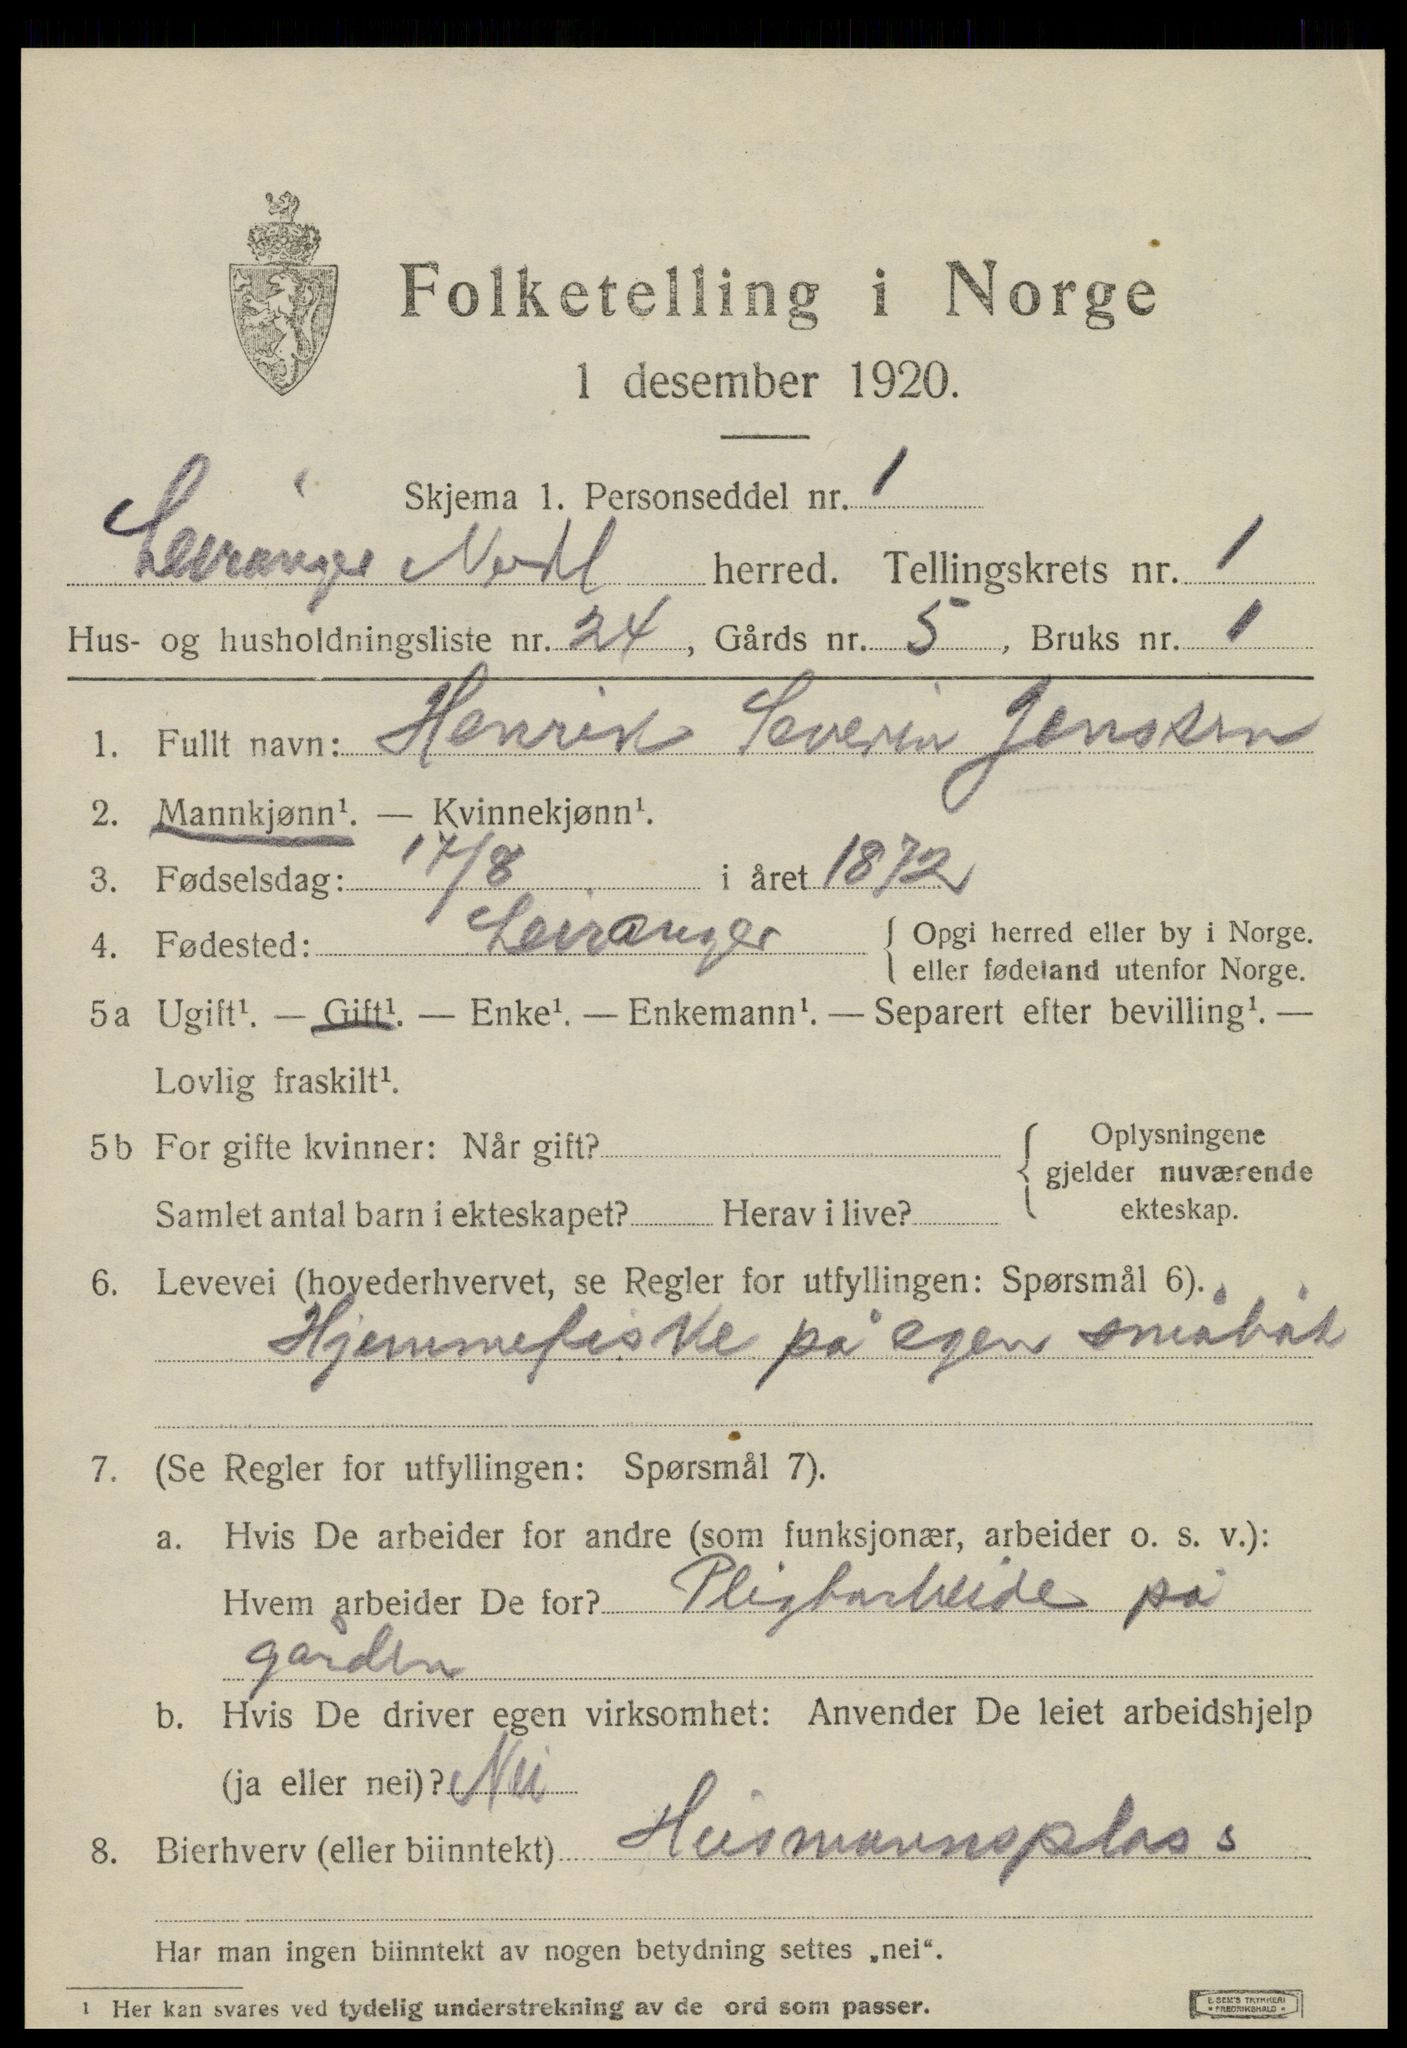 Folketelling i Norge
1 desember 1920.
Skjema 1. Personseddel nr. 1
Leiranger Nordl herred. Tellingskrets nr. 1
Hus- og husholdningsliste nr. 24, Gårds nr. 5, Bruks nr. 1
1. Fullt navn: Henrik Severin Jenssen
2. Mannkjønn¹. — Kvinnekjønn¹.
3. Fødselsdag: 17/8 i året 1872
4. Fødested: Leiranger { Opgi herred eller by i Norge.
eller fødeland utenfor Norge.
5a Ugift¹. — Gift¹. — Enke¹. — Enkemann¹. — Separert efter bevilling¹. —
Lovlig fraskilt¹.
5b For gifte kvinner: Når gift? { Oplysningene
gjelder nuværende
Samlet antal barn i ekteskapet? Herav i live? ekteskap.
6. Levevei (hovederhvervet, se Regler for utfyllingen: Spørsmål 6).
Hjemmefiske på egen småbåt
7. (Se Regler for utfyllingen: Spørsmål 7).
a. Hvis De arbeider for andre (som funksjonær, arbeider o. s. v.):
Hvem arbeider De for? Pligtarbeide på
gården
b. Hvis De driver egen virksomhet: Anvender De leiet arbeidshjelp
(ja eller nei)? Nei
8. Bierhverv (eller biinntekt) Husmannsplass
Har man ingen biinntekt av nogen betydning settes „nei“.
¹ Her kan svares ved tydelig understrekning av de ord som passer.
E. SEM'S TRYKKERI
* FREDRIKSHALD *